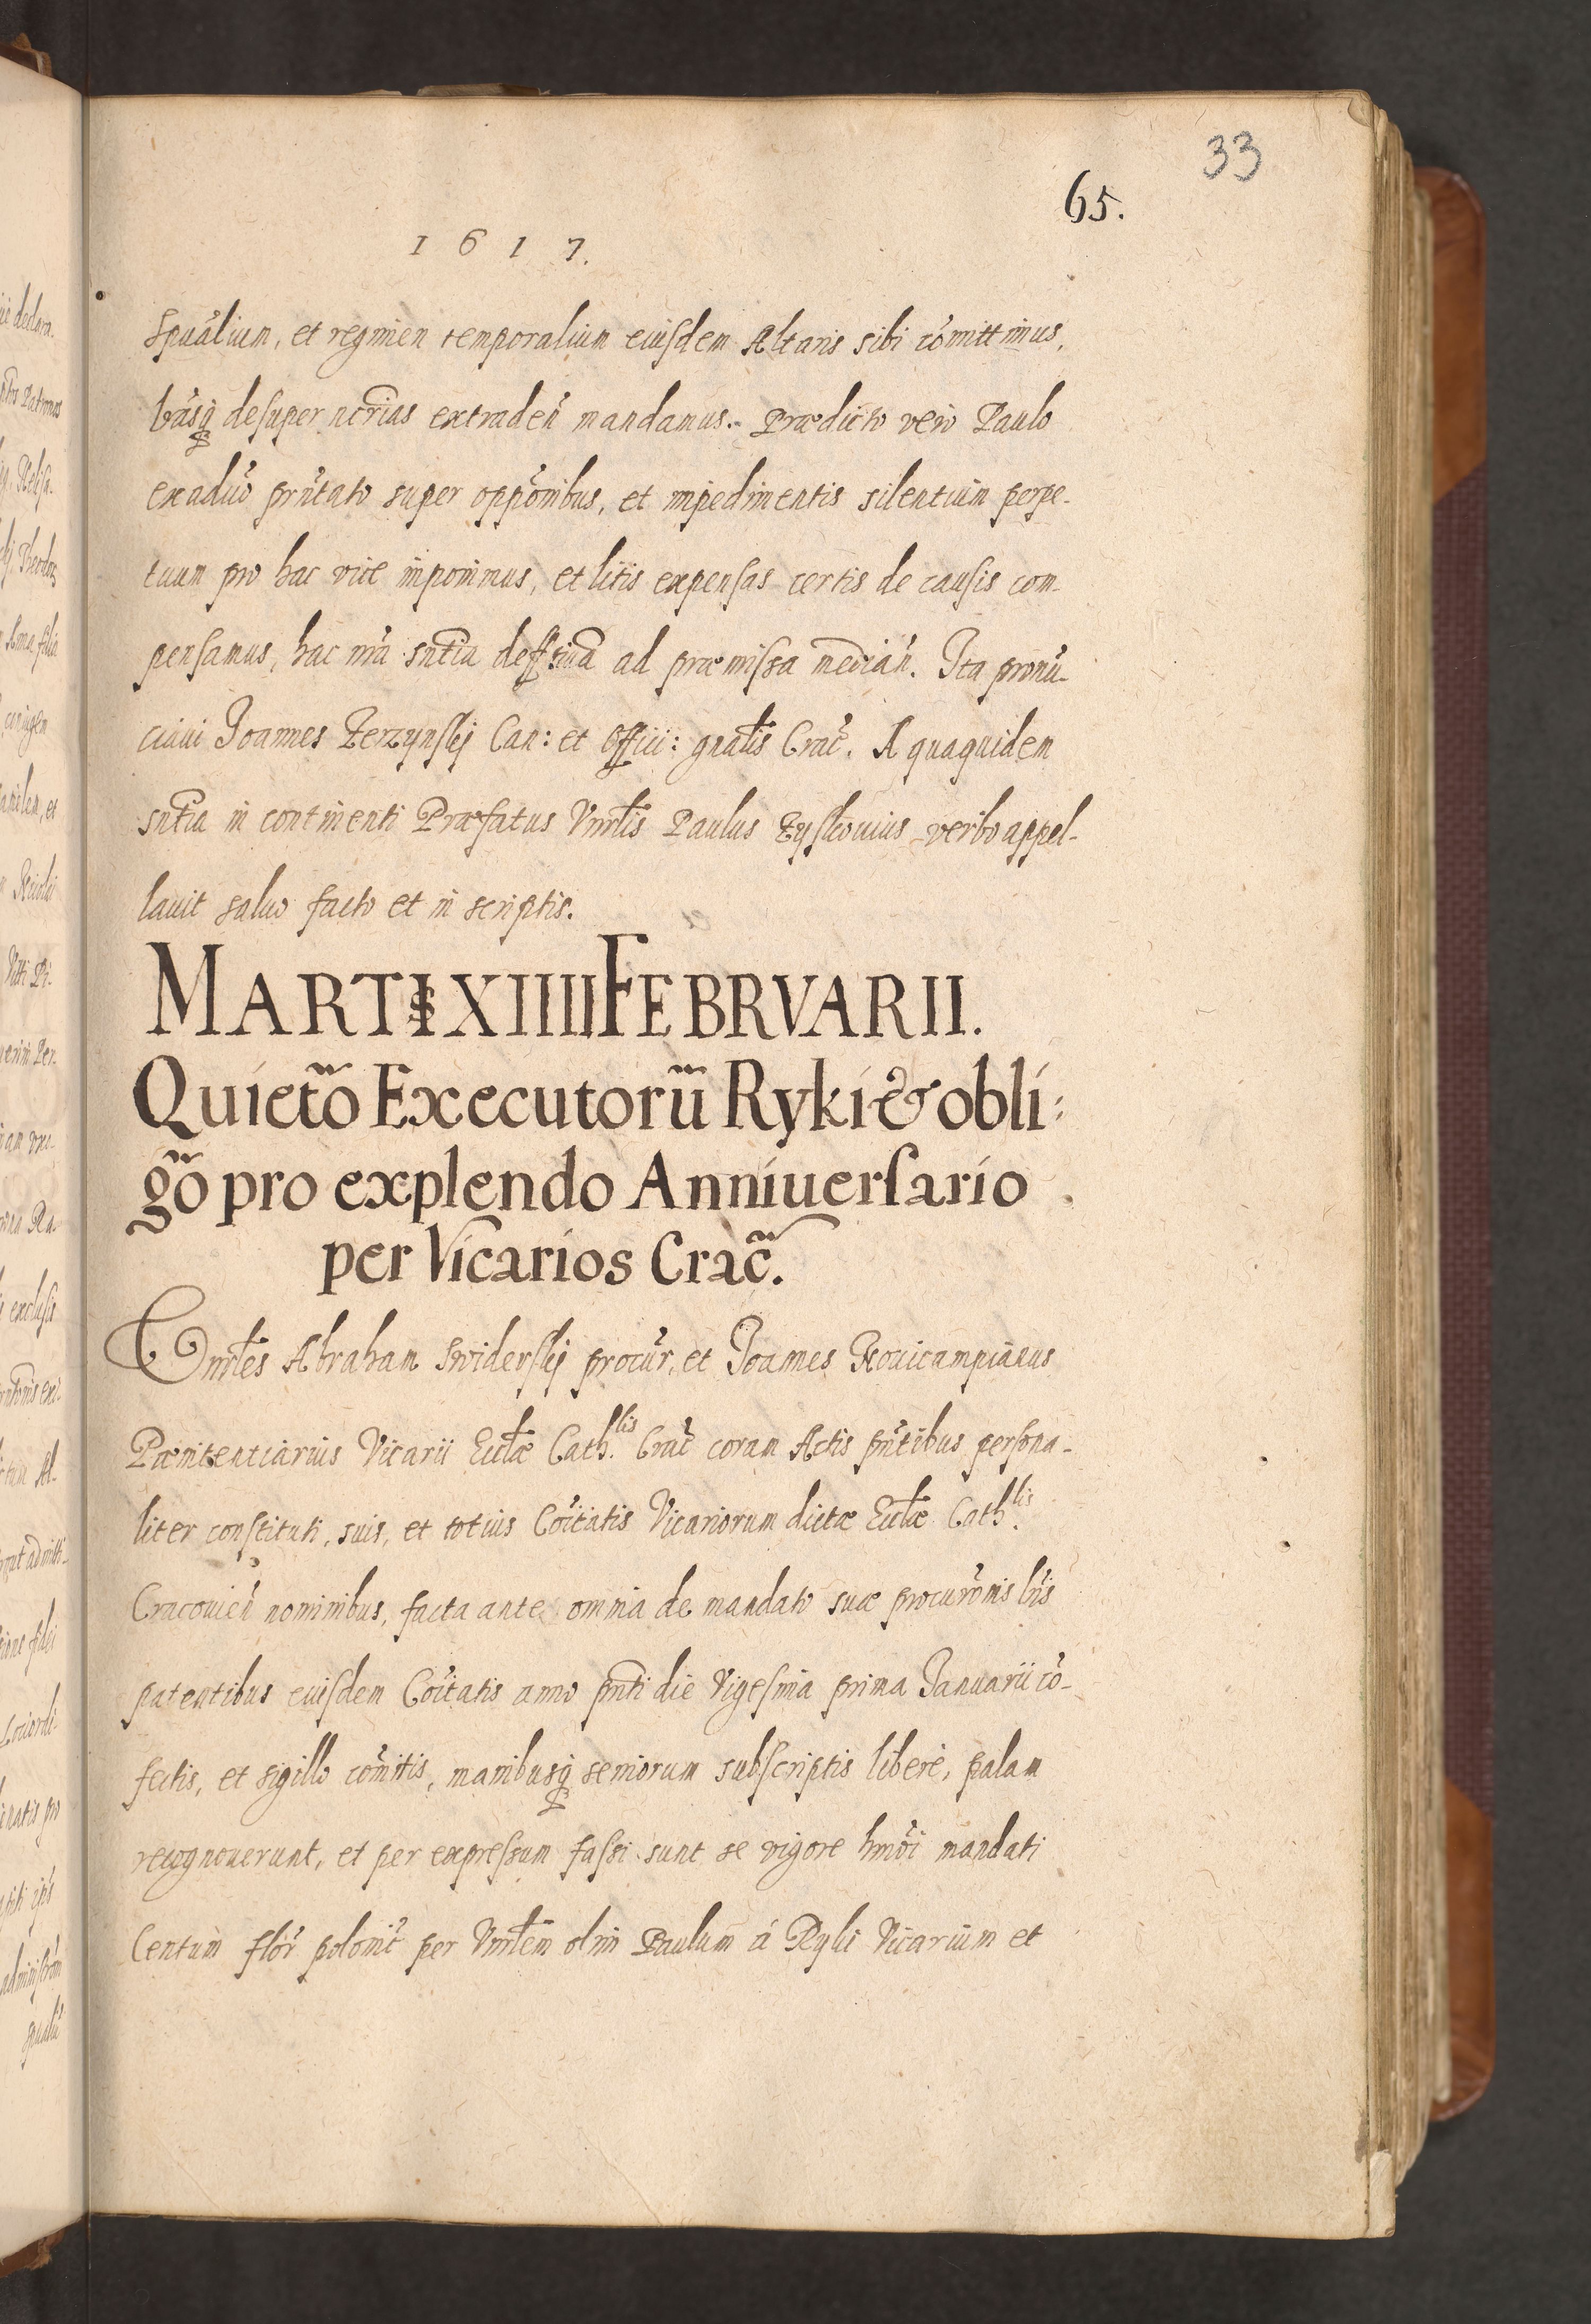 33
65.
1617.
Spuãlium, et regimen temporalium eiusdem Altaris sibi cõmittimus,
lrãsq desuper ncrias extradeñ mandamus. Prædicto vero Paulo
exaduõ prñtato super oppõnibus, et impedimentis silentium perpe-
tuum pro hac vice imponimus, et litis expensas certis de causis com-
pensamus, hac nrã sntia deffitiuã ad præmissa mediañ. Ita pronũ-
ciaui Joannes Zerzynskj Can: et Offici: gnalis Crac̃. A quaquidem
sntia in continenti Præfatus Vnrlis Paulus Zyskouius verbo appel-
lauit saluo facto et in scriptis.
MARTIS XIIII FEBRVARII.
Quietõ Executorũ Ryki & obli:
gõ pro explendo Anniuersario
per Vicarios Crac̃.
Vnrles Abraham Swiderskj procũr, et Joannes Nouicampianus
Pænitentiarius Vicarii Ecclæ Cath.lis Crac̃ coram Actis pñtibus persona-
liter constituti, suis, et totius Cõitatis Vicariorum dictæ Ecclæ Cath.lis
Cracouieñ nominibus, facta ante omnia de mandato suæ procurõnis lrĩs
patentibus eiusdem Cõitatis anno pnti die Vigesima prima Januarii cõ-
fectis, et sigillo cõmitis, manibusq seniorum subscriptis liberè, palam
recognouerunt, et per expressum fassi sunt se vigore hmõi mandati
Centum flõr polonic̃ per Vnrlem olim Paulum à Ryki Vicarium et